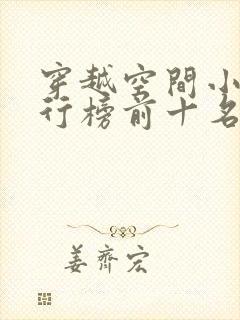 穿越空間小
行榜前十名
姜齊宏